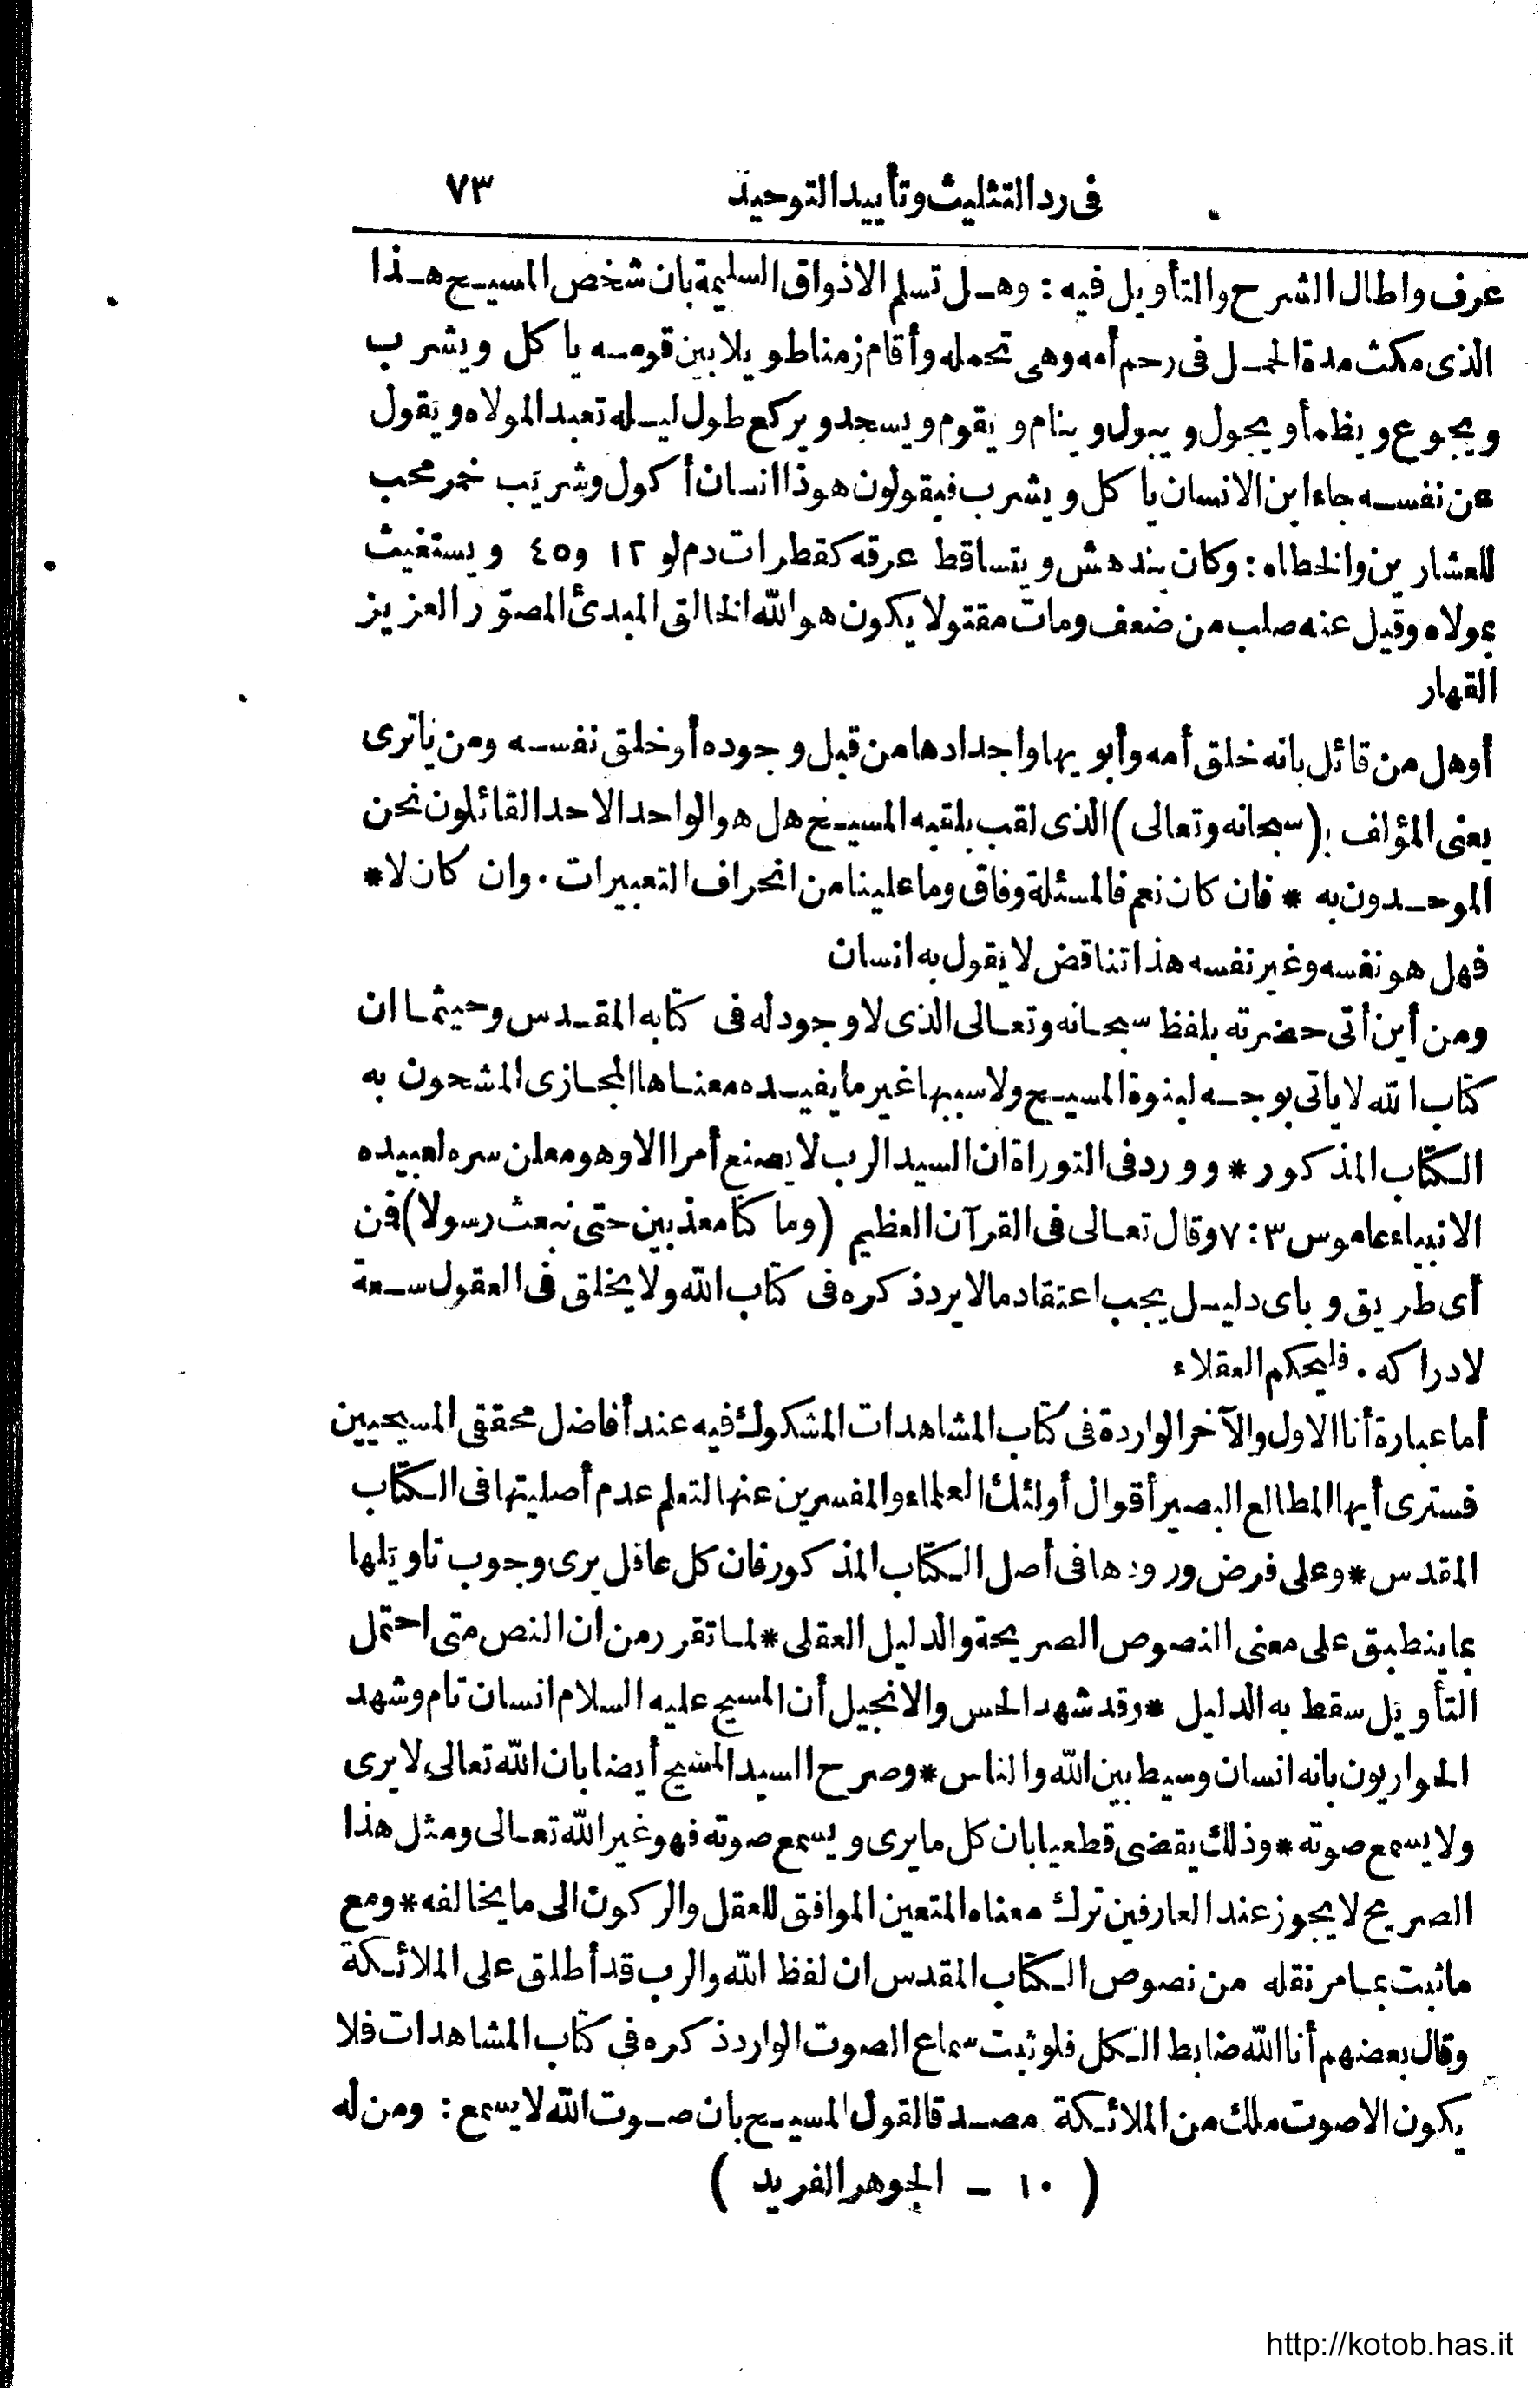 فى رد التثليث وتأييد التوحيد ٧٣
عرف واطال الشرح والتأويل فيه : وهل تسلم الاذواق السليمة بان شخص المسيح هذا
الذى مكث مدة الحمل فى رحم أمه وهى تحمله وأقام زمنا طويلا بين قومه ياكل ويشرب
ويجوع ويظمأ ويجول ويبول وينام ويقوم ويسجد ويركع طول ليله تعبد المولاه ويقول
عن نفسه جاء ابن الانسان ياكل ويشرب فيقولون هوذا انسان أكول وشريب خمر محب
للعشارين والخطاه : وكان يندهش ويتساقط عرقه كقطرات دم لو ١٢ و٤٥ ويستغيث
بمولاه وقيل عنه صلب من ضعف ومات مقتولا يكون هو الله الخالق المبدئ المصوّر العزيز
القهار
أوهل من قائل بانه خلق أمه وأبويها واجدادها من قبل وجوده أو خلق نفسه ومن ياترى
يعنى المؤلف ب(سبحانه وتعالى) الذى لقب بلقبه المسيح هل هو الواحد الاحد القائلون نحن
الموحدون به * فان كان نعم فالمسئلة وفاق وما علينا من انحراف التعبيرات . وان كان لا *
فهل هو نفسه وغير نفسه هذا تناقض لا يقول به انسان
ومن أين أتى حضرته بلفظ سبحانه وتعالى الذى لا وجود له فى كتابه المقدس وحيثما ان
كتاب الله لا ياتى بوجه لبنوة المسيح ولا سببها غير ما يفيده معناها المجازى المشحون به
الكتاب المذكور * وورد فى التوراة ان السيد الرب لا يصنع أمرا الا وهو معلن سره لعبيده
الانبياء عاموس ٣ : ٧ وقال تعالى فى القرآن العظيم (وما كنا معذبين حتى نبعث رسولا) فمن
أى طريق وباى دليل يجب اعتقاد مالا يرد ذكره فى كتاب الله ولا يخلق فى العقول سعة
لادراكه . فليحكم العقلاء
أما عبارة أنا الاول والآخر الواردة فى كتاب المشاهدات المشكوك فيه عند أفاضل محققى المسيحيين
فسترى أيها المطالع البصير أقوال أولئك العلماء والمفسرين عنها لتعلم عدم أصليتها فى الكتاب
المقدس * وعلى فرض ورودها فى أصل الكتاب المذكور فان كل عاقل يرى وجوب تاويلها
بما ينطبق على معنى النصوص الصريحة والدليل العقلى * لما تقرر من ان النص متى احتمل
التأويل سقط به الدليل * وقد شهد الحس والانجيل أن المسيح عليه السلام انسان تام وشهد
الحواريون بانه انسان وسيط بين الله والناس * وصرح السيد المسيح أيضا بان الله تعالى لا يرى
ولا يسمع صوته * وذلك يقضى قطعيا بان كل ما يرى ويسمع صوته فهو غير الله تعالى ومثل هذا
الصريح لا يجوز عند العارفين ترك معناه المتعين الموافق للعقل والركون الى ما يخالفه * ومع
ما ثبت بما مر نقله من نصوص الكتاب المقدس ان لفظ الله والرب قد أطلق على الملائكة
وقال بعضهم أنا الله ضابط الكل فلو ثبت سماع الصوت الوارد ذكره فى كتاب المشاهدات فلا
يكون الا صوت ملك من الملائكة مصدقا لقول المسيح بان صوت الله لا يسمع : ومن له
( ١٠ - الجوهر الفريد )
http://kotob.has.it